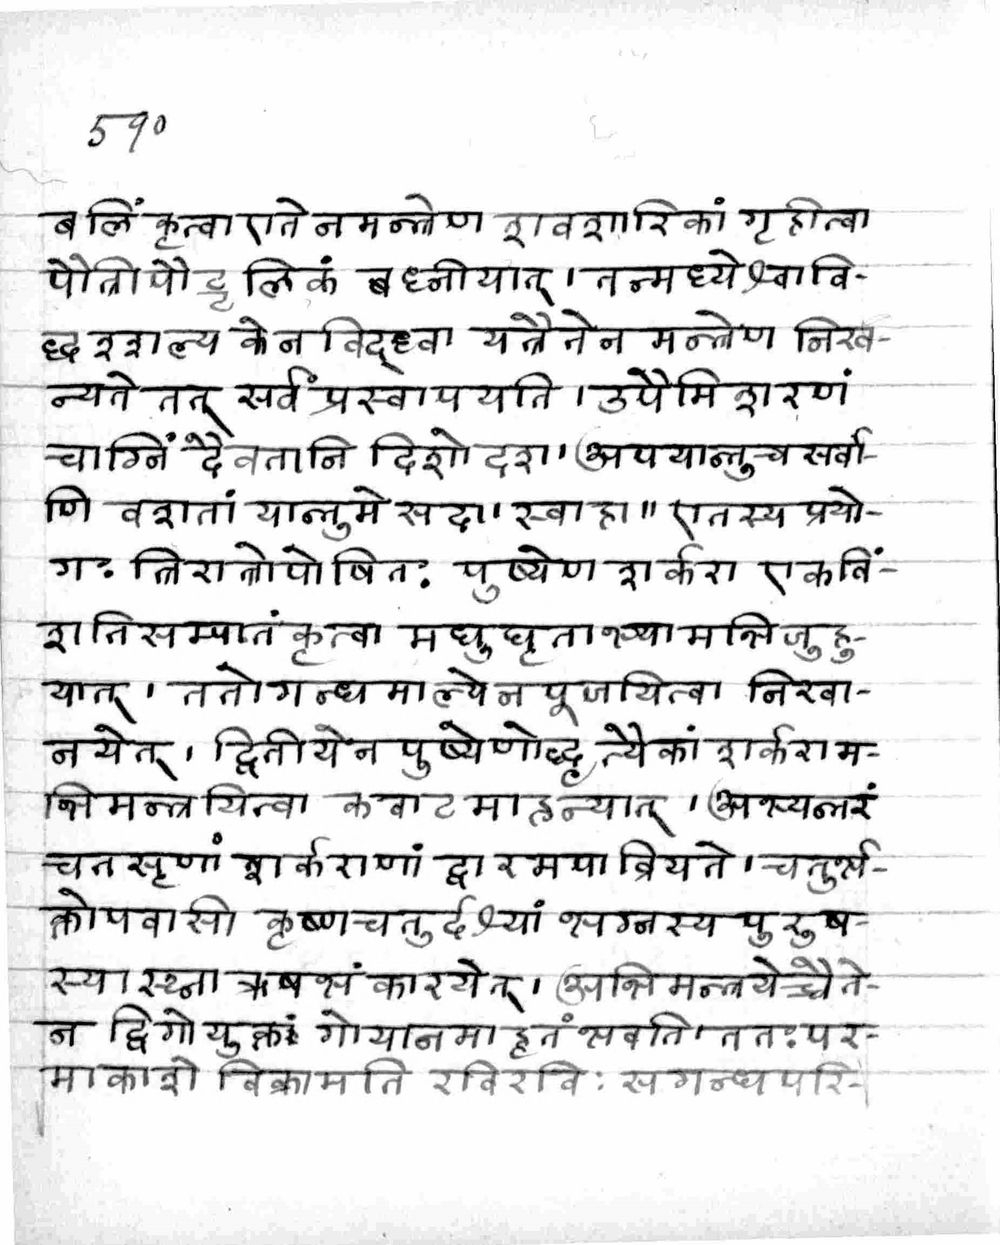 ५१०
बलिं कृत्वा एतेन मन्त्रेण शवशारिकां गृहीत्वा
पोत्रीपोट्टलिकं बध्नीयात् । तन्मध्ये श्वावि-
द्धशशल्यकेन विद्ध्वा यत्रैतेन मन्त्रेण निख-
न्यते तत् सर्वं प्रस्वापयति । उपैमि शरणं
चाग्निं दैवतानि दिशो दश । अपयान्तु च सर्वा-
णि वशतां यान्तु मे सदा । स्वाहा ॥ एतस्य प्रयो-
गः त्रिरात्रोपोषितः पुष्येण शर्करा एकविं-
शतिसम्पातं कृत्वा मधुघृताभ्यामभिजुहु-
यात् । ततो गन्धमाल्येन पूजयित्वा निखा-
नयेत् । द्वितीयेन पुष्येणोद्धृत्यैकां शर्कराम-
भिमन्त्रयित्वा कवाटमाहन्यात् । अभ्यन्तरं
चतसृणां शर्कराणां द्वारमपाव्रियते । चतुर्भ-
क्तोपवासी कृष्णचतुर्दश्यां भग्नस्य पुरुष-
स्यास्थ्ना ऋषभं कारयेत् । अभिमन्त्रयेच्चैते-
न द्विगोयुक्तं गोयानमाहृतं भवति । ततः पर-
माकाशे विक्रामति रविरविः सगन्धपरि-